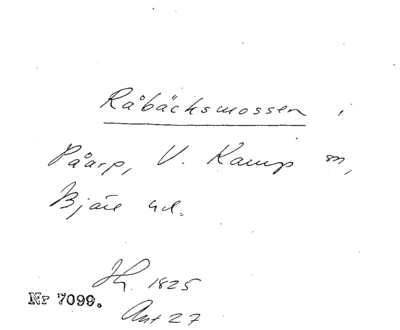 Råbäcksmossen,
Påarp, V. Karup sn,
Bjäre hd.
Jh. 1825
Nr 7099.
Ant 27